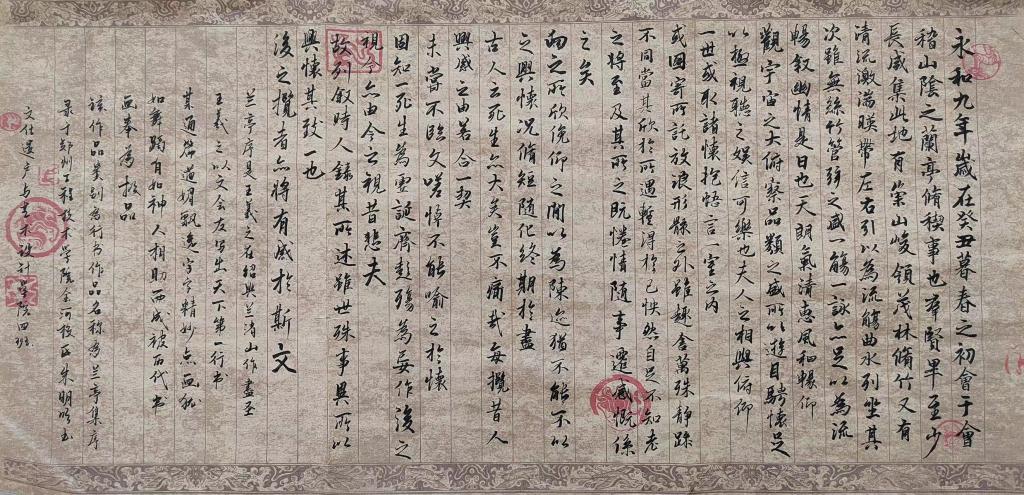 永和九年歲在癸丑暮春之初會于會
稽山陰之蘭亭脩稧事也羣賢畢至少
長咸集此地有崇山峻領茂林脩竹又有
清流激湍暎帶左右引以為流觴曲水列坐其
次雖無絲竹管弦之盛一觴一詠亦足以
暢敘幽情是日也天朗氣清惠風和暢仰
觀宇宙之大俯察品類之盛所以遊目騁懷足
以極視聽之娛信可樂也夫人之相與俯仰
一世或取諸懷抱悟言一室之內
或因寄所託放浪形骸之外雖趣舍萬殊靜躁
不同當其欣於所遇輕得於己怏然自足不知老
之將至及其所之既惓情隨事遷感慨係
之矣
向之所欣俛仰之間以為陳迹猶不能不以
之興懷況脩短隨化終期於盡
古人云死生亦大矣豈不痛哉每攬昔人
興感之由若合一契
未嘗不臨文嗟悼不能喻之於懷
固知一死生為虛誕齊彭殤為妄作後之
視今亦由今之視昔悲夫
故列敘時人錄其所述雖世殊事異所以
興懷其致一也
後之攬者亦將有感於斯文
兰亭序是王羲之在绍興兰渚山作盡至
王羲之以文会友写出天下第一行书
其通篇遒媚飘逸字字精妙点画犹
如舞蹈有如神人相助而成被历代书
画奉為极品
该作品类别為行书作品名称為兰亭集序
录于郑州工程技术学院金河校区朱明